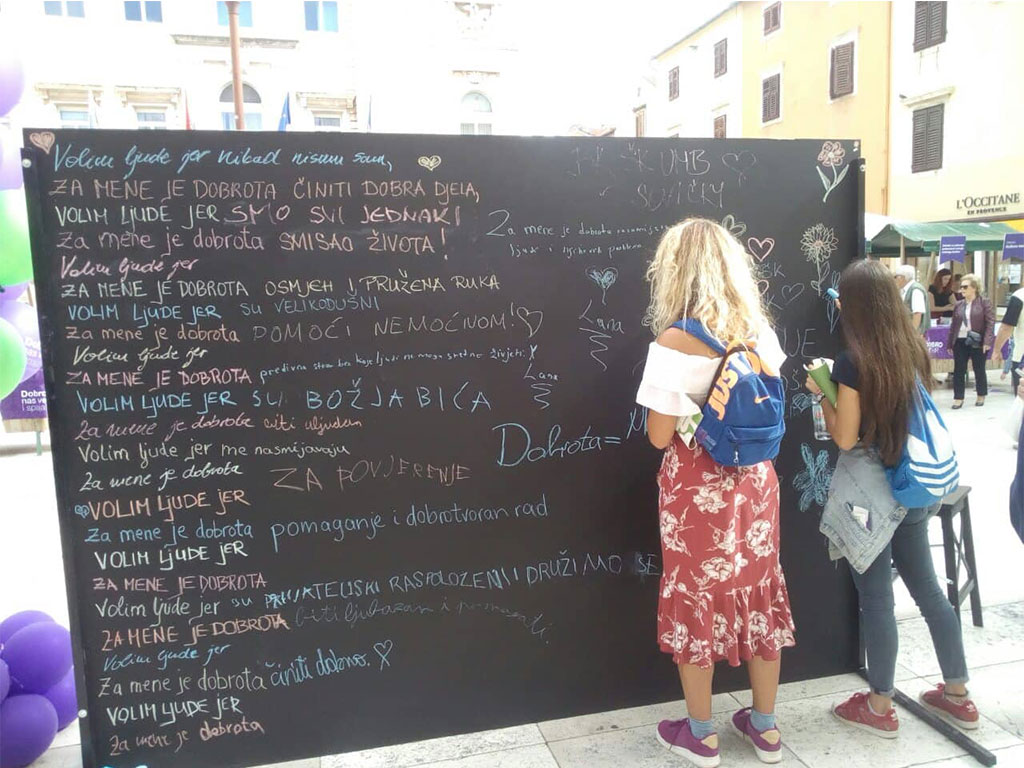 Volim ljude jer nikad nisam sam,
ZA MENE JE DOBROTA ČINITI DOBRA DJELA,
VOLIM LJUDE JER SMO SVI JEDNAKI
Za mene je dobrota SMISAO ŽIVOTA!
Volim ljude jer
ZA MENE JE DOBROTA OSMJEH I PRUŽENA RUKA
VOLIM LJUDE JER SU VELIKODUŠNI
Za mene je dobrota POMOĆI NEMOĆNOM!
Volim ljude jer
ZA MENE JE DOBROTA predivna stvar bez koje ljudi ne mogu sretno živjeti
VOLIM LJUDE JER SU BOŽJA BIĆA
Za mene je dobrota biti uljudan
Volim ljude jer me nasmijavaju
Za mene je dobrota
ZA POVJERENJE
VOLIM LJUDE JER
Za mene je dobrota pomaganje i dobrotvoran rad
VOLIM LJUDE JER
ZA MENE JE DOBROTA
Volim ljude jer su PRIJATELJSKI RASPOLOŽENI I DRUŽIMO SE
ZA MENE JE DOBROTA biti ljubazan i pomagati.
Volim ljude jer
Za mene je dobrota činiti dobro.
VOLIM LJUDE JER
Za mene je dobrota
ŠK
SOVIČKY
Za mene je dobrota
ljudi i njihovih problema
Lana
Lana
Dobrota =
JUST DO
L'OCCITANE
EN PROVENCE